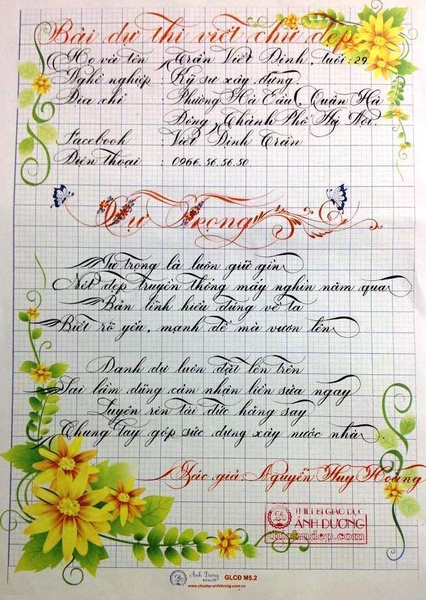 Bài dự thi viết chữ đẹp
Họ và tên : Trần Viết Định, tuổi: 29
Nghề nghiệp : Kỹ sư xây dựng.
Địa chỉ : Phường Hà Cầu, Quận Hà
Đông, Thành Phố Hà Nội.
Facebook : Viết Định Trần
Điện thoại : 0966.56.56.50
Tự Trọng
Tự trọng là luôn giữ gìn
Nét đẹp truyền thống mấy nghìn năm qua
Bản lĩnh hiểu đúng về ta
Biết rõ yếu, mạnh để mà vươn lên
Danh dự luôn đặt lên trên
Sai lầm dũng cảm nhận liền sửa ngay
Luyện rèn tài đức hàng say
Chung tay góp sức dựng xây nước nhà.
Tác giả: Nguyễn Huy Hoàng
THIẾT BỊ GIÁO DỤC
ÁNH DƯƠNG
Ánh Dương
GLCD M5.2
www.chudep-anhduong.com.vn